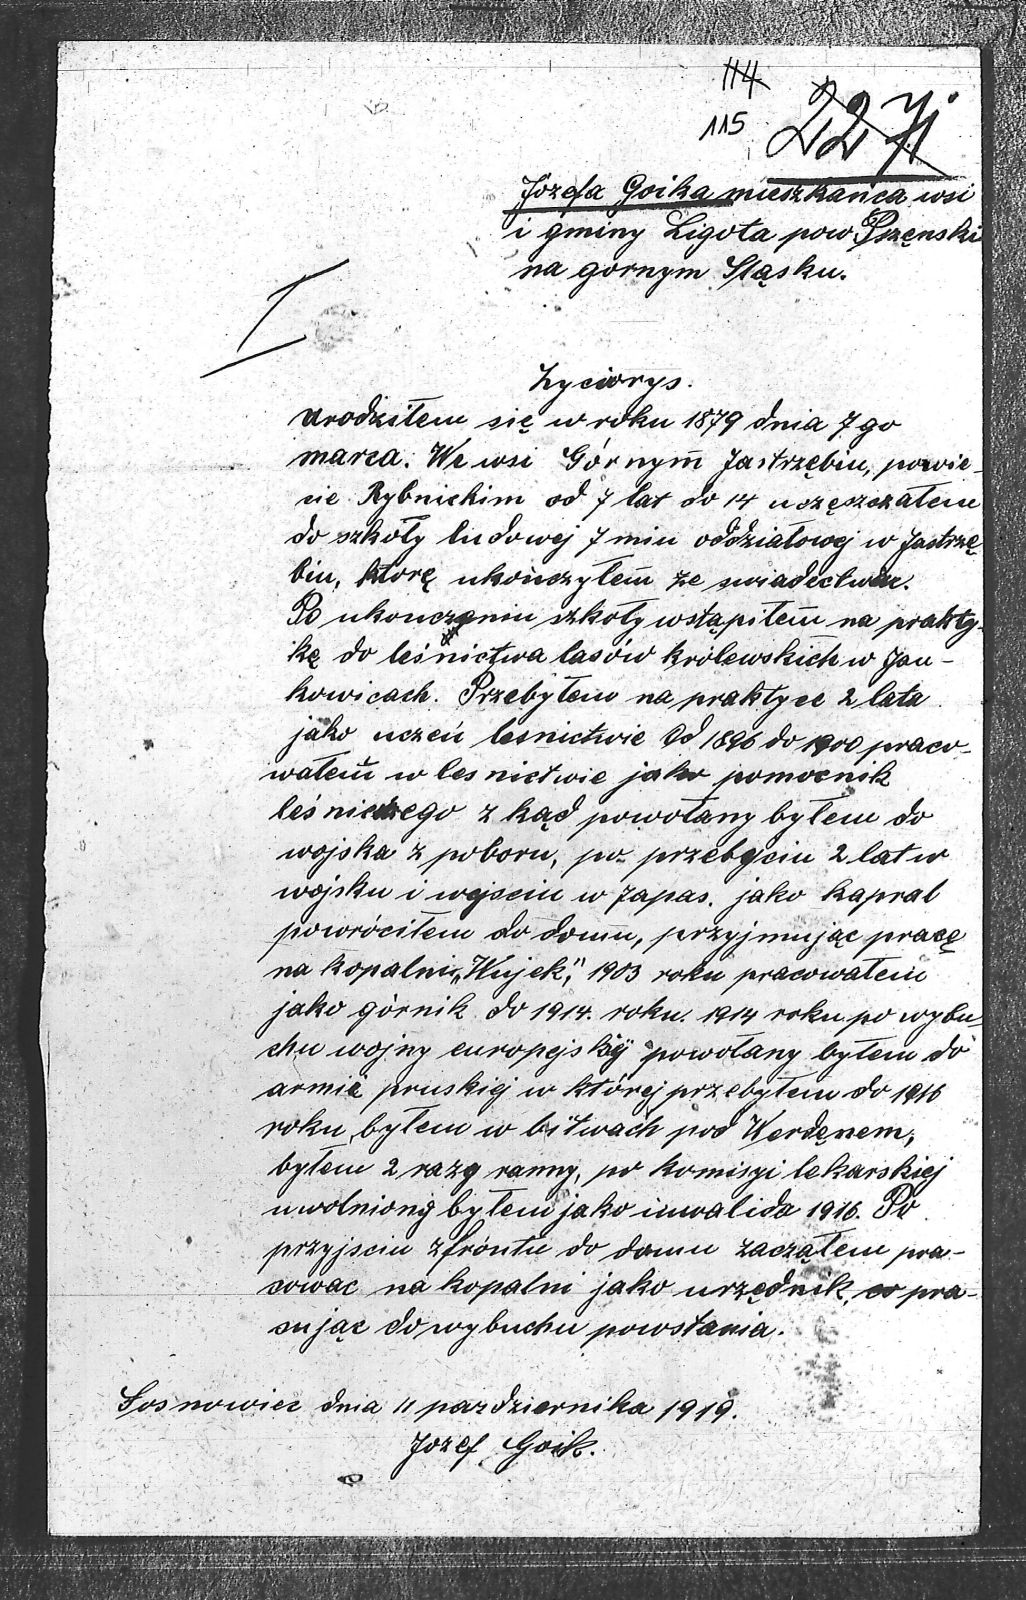 114
115
227j
Józefa Goika mieszkańca wsi
i gminy Ligota pow Pszęnski
na gornym Sląsku.
I
Życiorys.
Urodziłem się w roku 1879 dnia 7go
marca. We wsi Górnym Jastrzębiu, powie-
cie Rybnickim od 7 lat do 14 uczęszczałem
do szkoły ludowej 7 miu oddziałowej w Jastrzę-
biu, ktorę ukończyłem ze swiadectwem.
Po ukonczeniu szkoły wstąpiłem na prakty-
kę do leśnictwa lasów królewskich w Jan-
kowicach. Przebyłem na praktyce 2 lata
jako uczeń lesnictwie Od 1896 do 1900 praco-
wałem w lesnictwie jako pomocnik
leśniczego z kąd powołany byłem do
wojska z poboru, po przebyciu 2 lat w
wojsku i wejsciu w zapas. jako kapral
powróciłem do domu, przyjmując pracę
na kopalni „Wujek", 1903 roku pracowałem
jako górnik do 1914. roku. 1914 roku po wybu-
chu wojny europejskij powołany byłem do
armie pruskiej w której przebyłem do 1916
roku, byłem w bitwach pod Werdęnem,
byłem 2 razy ranny, po komisyi lekarskiej
uwolniony byłem jako inwalida 1916. Po
przyjsciu z fróntu do domu zacząłem pra-
cowac na kopalni jako urzędnik, co pra-
cując do wybuchu powstania.
Sosnowiec dnia 11 pazdziernika 1919.
Jozef Goik.